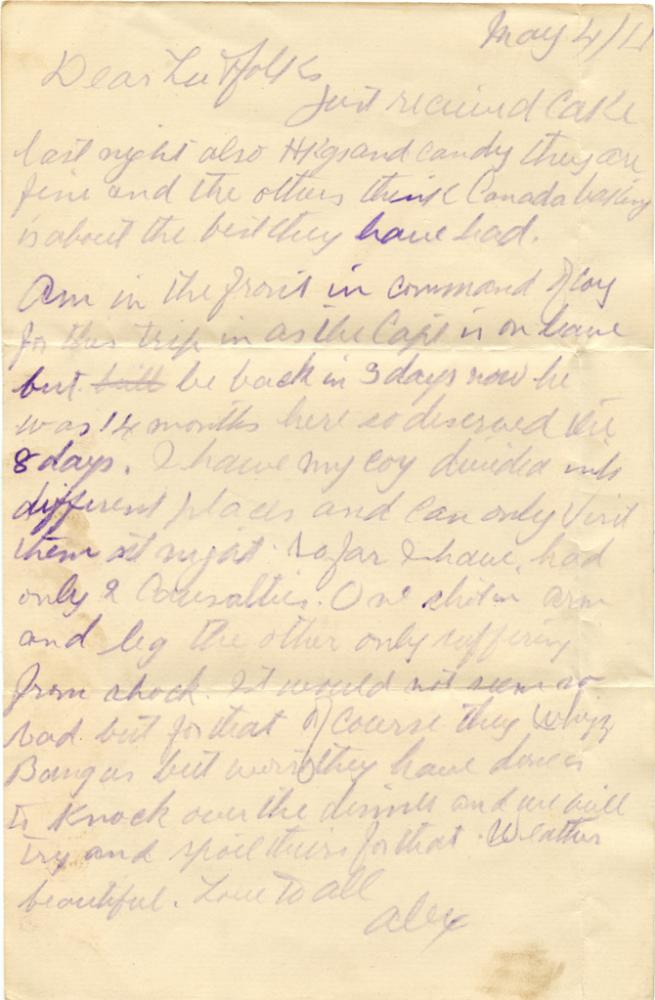 May 4/1
Dear folks
Just recieved cake
last night also Hkgs and candy they are
fine and the others think Canada baking
is about the best they have had.
Am in the front in command of coy
for this trip in as the Capt is on leave
but will be back in 3 days now he
was 14 months here so deserved the
8 days. I have my coy divided into
different places and can only visit
them at night. So far I have had
only 2 Causalties. One shot in arm
and leg the other only suffering
from shock. It would not seem so
bad but for that of course they Whizz
Bang us but worst they have done is
to knock over the dinner and we will
try and spoil theirs for that. Weather
beautiful. Love to all
Alex